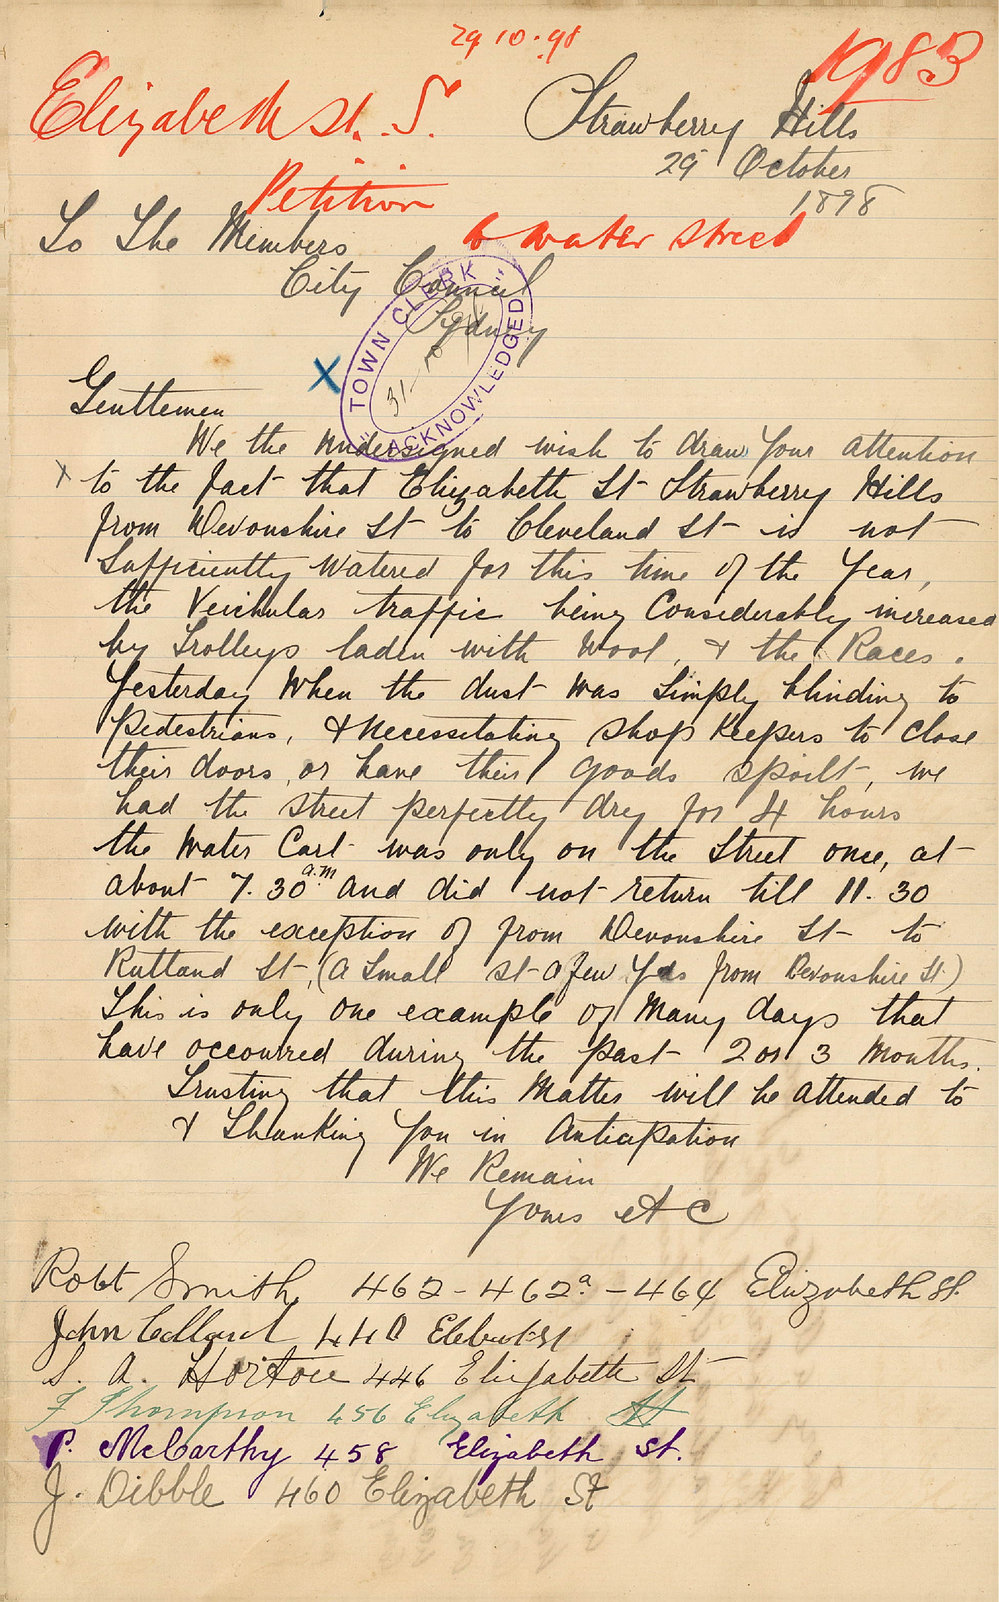 29 10.98
1983
Elizabeth St. S.
Strawberry Hills
29 October
1898
Petition
to water street
To The Members
City Council
Sydney
TOWN CLERK
31-10
"ACKNOWLEDGED"
X
Gentlemen
We the undersigned wish to draw Your attention
x to the fact that Elizabeth St Strawberry Hills
from Devonshire St to Cleveland St is not
Sufficiently Watered for this time of the Year,
the Veichular traffic being Considerably increased
by Trolleys laden with Wool, & the Races.
Yesterday When the dust was Simply blinding to
Pedestrians, & necessitating Shop Keepers to Close
their doors, or have their goods spoilt, we
had the street perfectly dry for 4 hours
the Water Cart was only on the Street once, at
about 7.30 a.m and did not return till 11.30
with the exception of from Devonshire St to
Rutland St, (a Small st a few Yds from Devonshire St)
This is only one example of Many days that
have occoured during the past 2 or 3 Months.
Trusting that this Matter will be attended to
& Thanking You in Anticipation
We Remain
Yours etc
Robt Smith 462-462a-464 Elizabeth St.
John 440
S. A. Horton 446 Elizabeth St
F Thompson 456 Elizabeth St
P. McCarthy 458 Elizabeth St.
J. Dibble 460 Elizabeth St